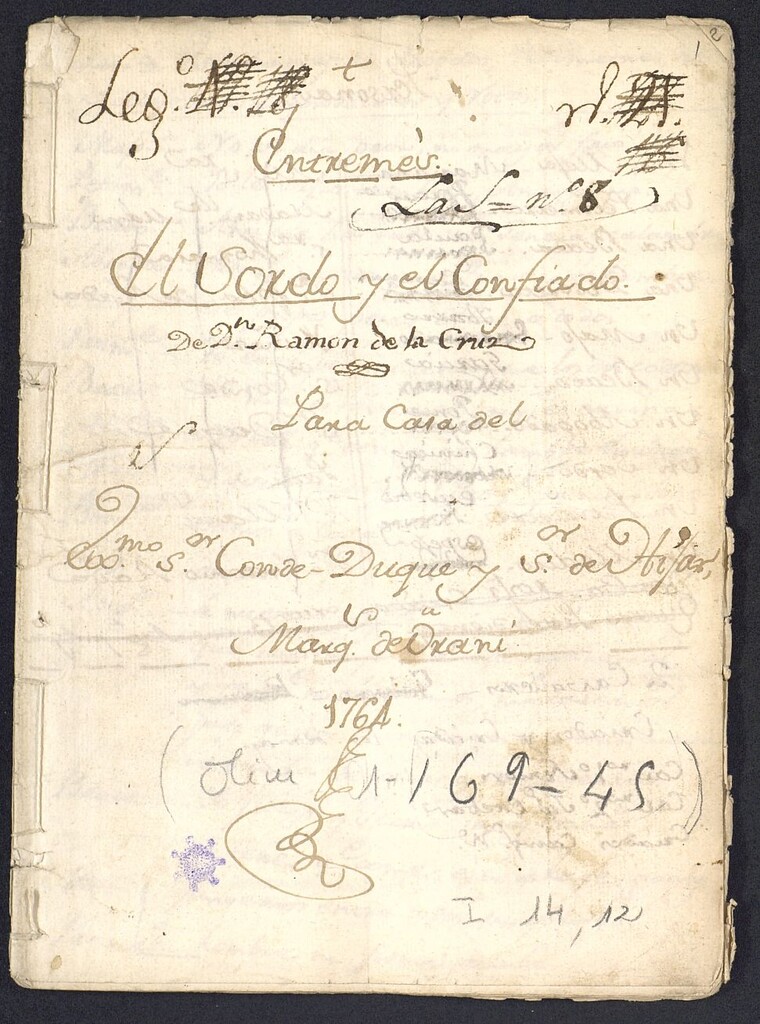 2
Leg.º
Entremés.
El Sordo y el Confiado.
De Dn. Ramon de la Cruz
Para Casa del
Exx.mo S.or Conde-Duque y S.or de Hijar,
Marq.s de Orani
1764.
(Olim 1-169-45)
I 14, 12